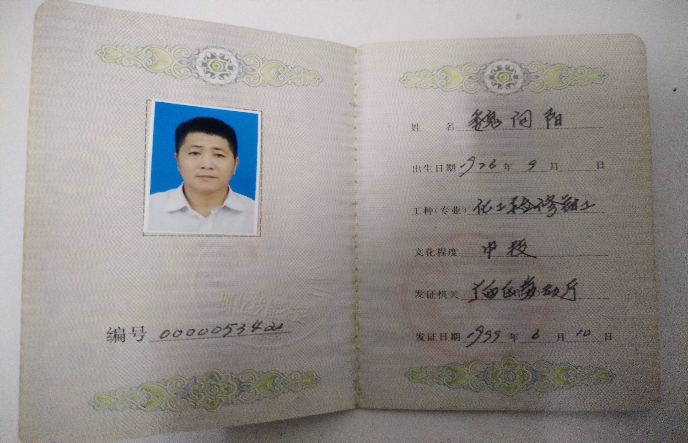 编号 0000053420
姓名 魏向阳
出生日期 1976 年 9 月 日
工种(专业) 化工检修钳工
文化程度 中技
发证机关 劳动厅
发证日期 1999 年 6 月 10 日